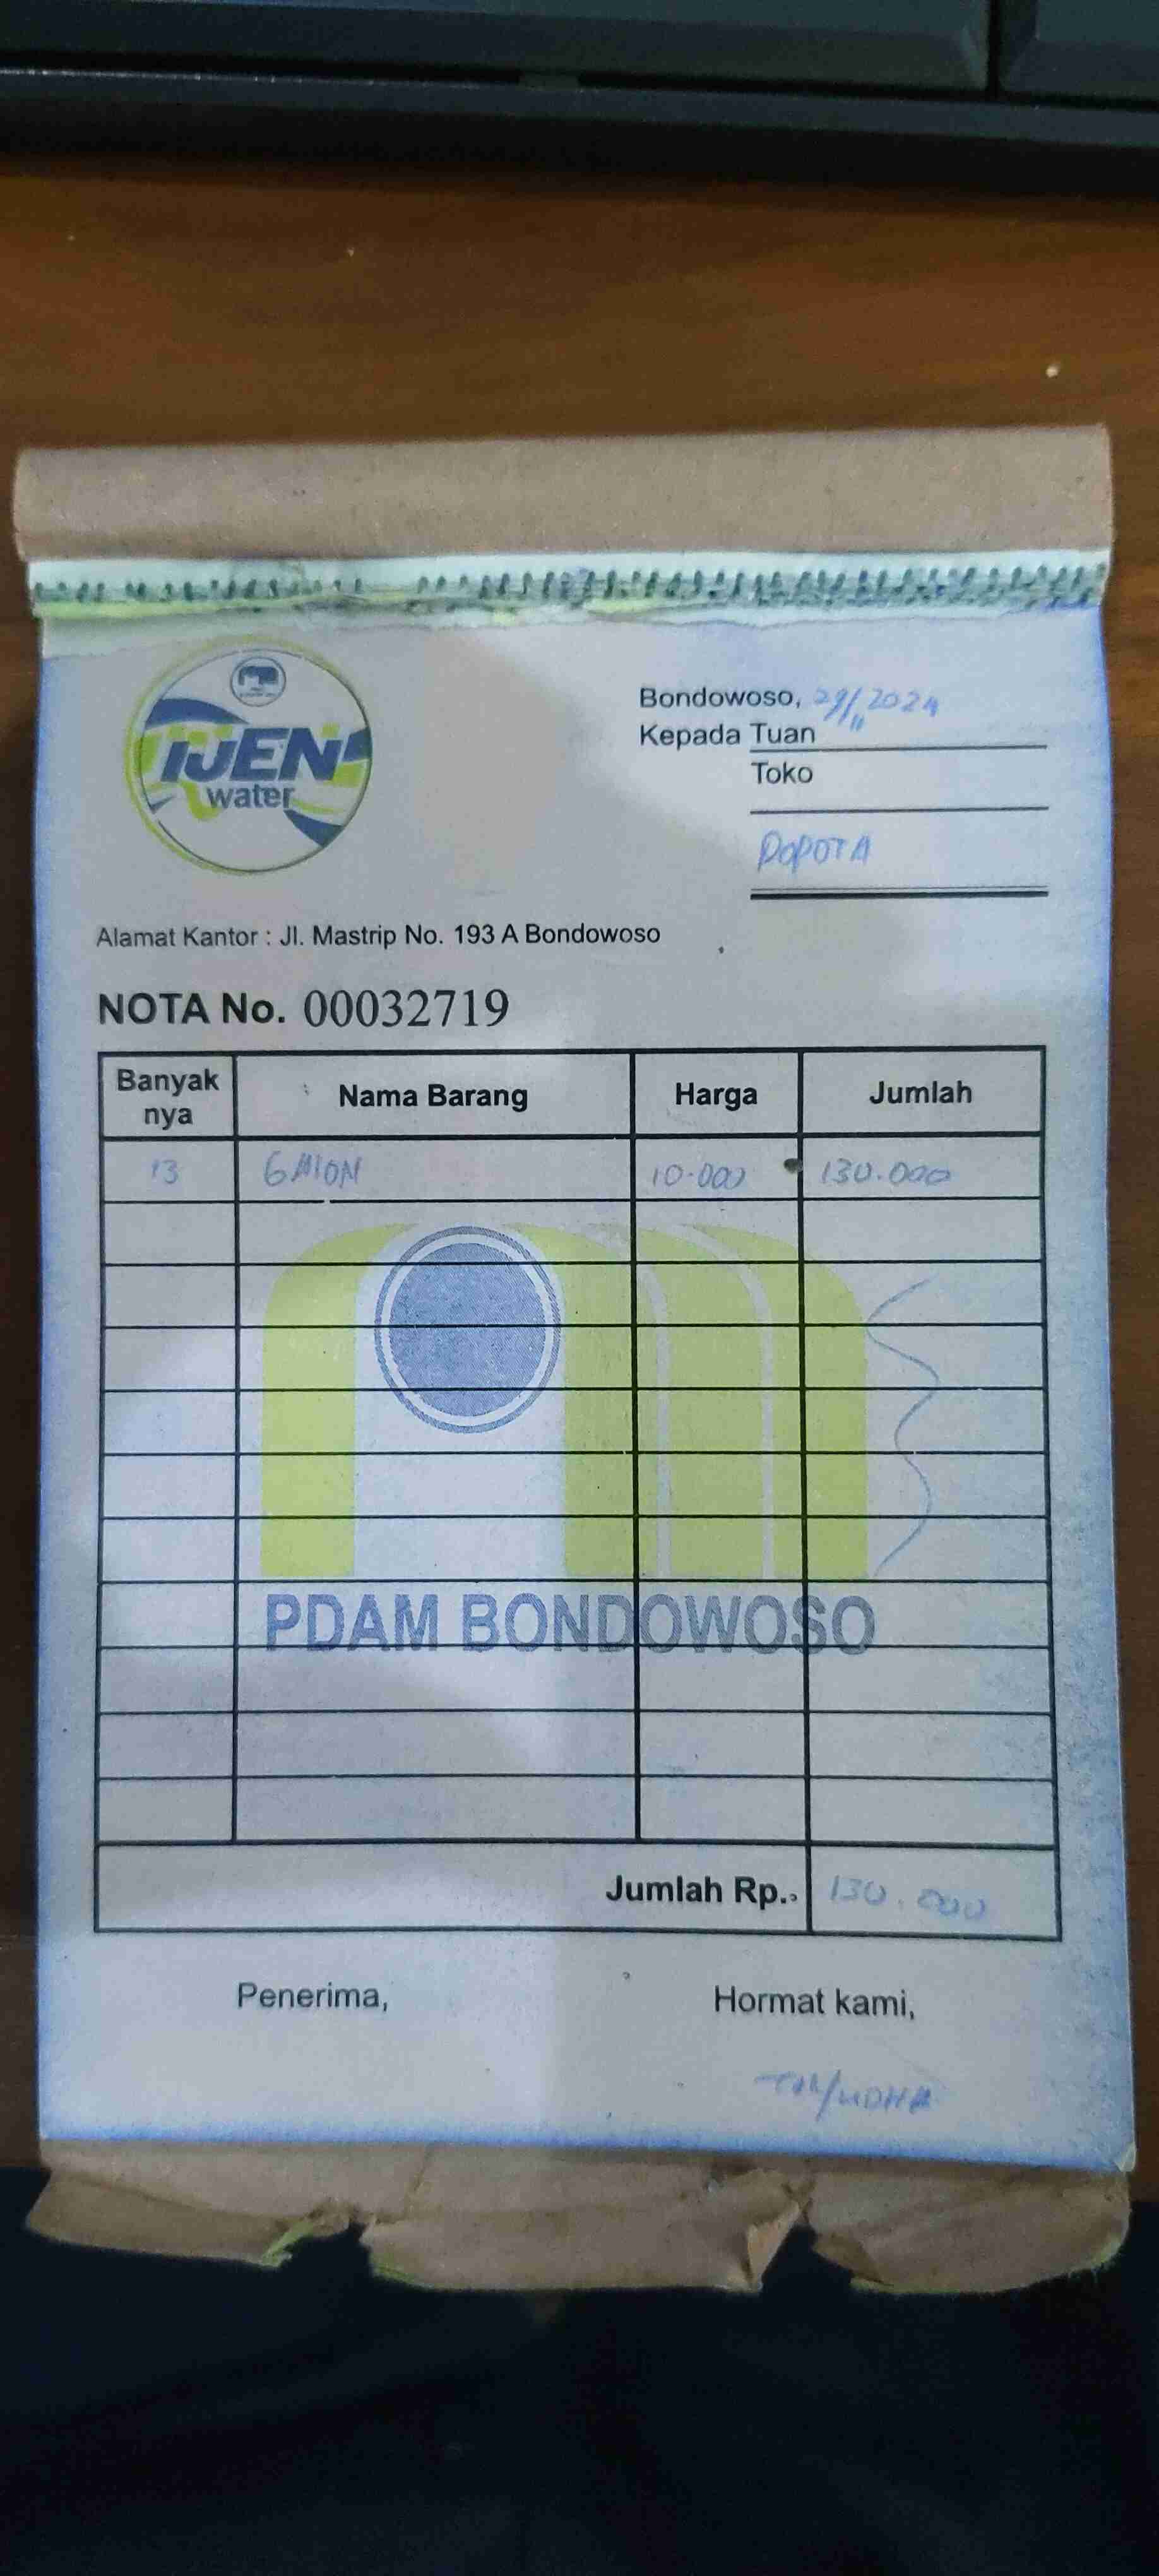 IJEN
water
Bondowoso, 29/11 2024
Kepada Tuan
Toko
POPOTA
Alamat Kantor : Jl. Mastrip No. 193 A Bondowoso
NOTA No. 00032719
Banyak nya Nama Barang Harga Jumlah
13 GAlON 10.000 130.000
PDAM BONDOWOSO
Jumlah Rp. 130.000
Penerima, Hormat kami,